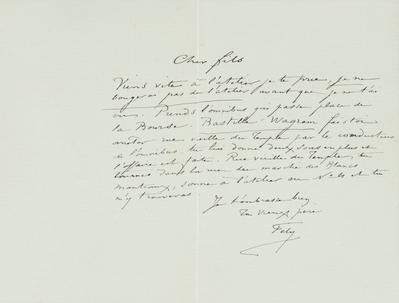 Cher fils
Viens vite à l'atelier je te prie, je ne
bougerai pas de l'atelier avant que je ne t'ai
vu. Prends l'omnibus qui passe place de
la Bourse. Bastille-Wagram fais toi
arrêter rue vieille du Temple par le conducteur
de l'omnibus tu lui donnes deux sous en plus et
l'affaire est faite. Rue vieille du Temple, tu
tournes dans la rue du marché des Blancs
manteaux, sonne à l'atelier au No 4 et tu
m'y trouveras
Je t'embrasse bien
Ton vieux père
Fély